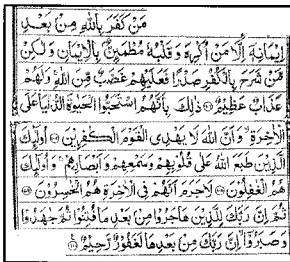 مَنْ كَفَرَ بِاللّٰهِ مِنْۢ بَعْدِ
اِيْمَانِهٖۤ اِلَّا مَنْ اُكْرِهَ وَقَلْبُهٗ مُطْمَئِنٌّۢ بِالْاِيْمَانِ وَلٰكِنْ
مَّنْ شَرَحَ بِالْكُفْرِ صَدْرًا فَعَلَيْهِمْ غَضَبٌ مِّنَ اللّٰهِ وَلَهُمْ
عَذَابٌ عَظِيْمٌ ذٰلِكَ بِاَنَّهُمُ اسْتَحَبُّوا الْحَيٰوةَ الدُّنْيَا عَلَى
الْاٰخِرَةِ وَاَنَّ اللّٰهَ لَا يَهْدِى الْقَوْمَ الْكٰفِرِيْنَ اُولٰٓئِكَ
الَّذِيْنَ طَبَعَ اللّٰهُ عَلٰى قُلُوْبِهِمْ وَسَمْعِهِمْ وَاَبْصَارِهِمْ وَاُولٰٓئِكَ
هُمُ الْغٰفِلُوْنَ لَا جَرَمَ اَنَّهُمْ فِى الْاٰخِرَةِ هُمُ الْخٰسِرُوْنَ
ثُمَّ اِنَّ رَبَّكَ لِلَّذِيْنَ هَاجَرُوْا مِنْۢ بَعْدِ مَا فُتِنُوْا ثُمَّ جٰهَدُوْا
وَصَبَرُوْۤا اِنَّ رَبَّكَ مِنْۢ بَعْدِهَا لَغَفُوْرٌ رَّحِيْمٌ